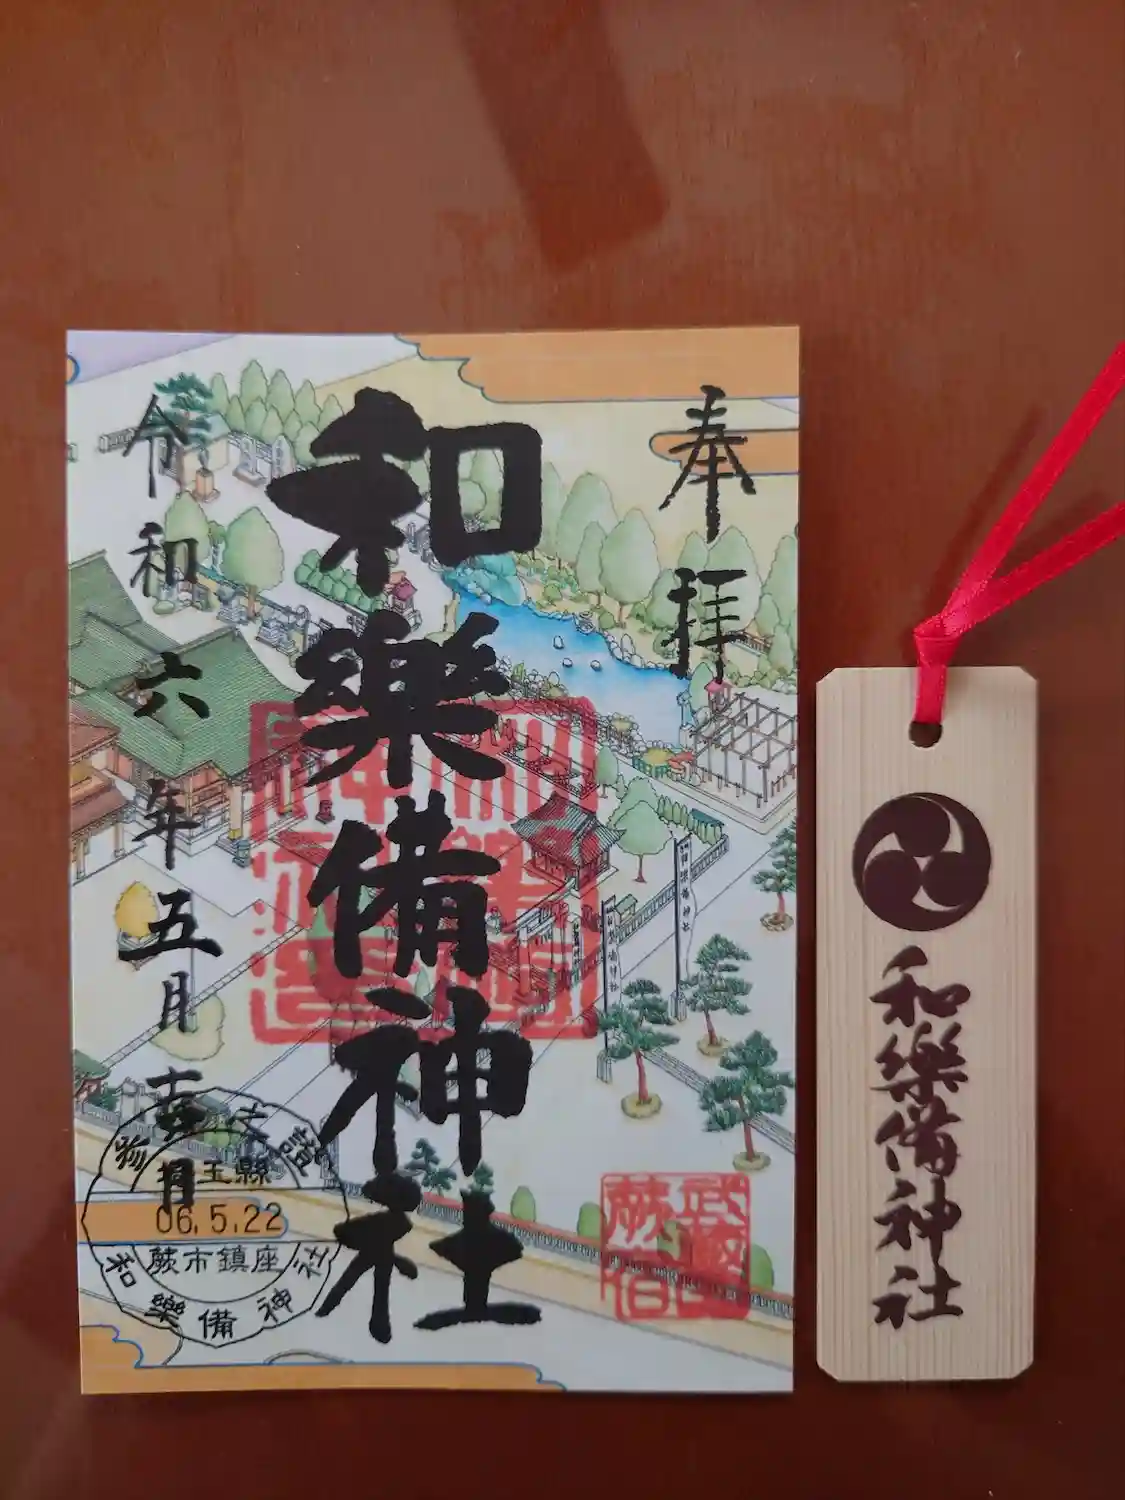 奉拝
和樂備神社
令和六年五月
武蔵国
蕨宿
参之證
埼玉縣
06.5.22
蕨市鎮座
和樂備神社
和樂備神社
和樂備神社